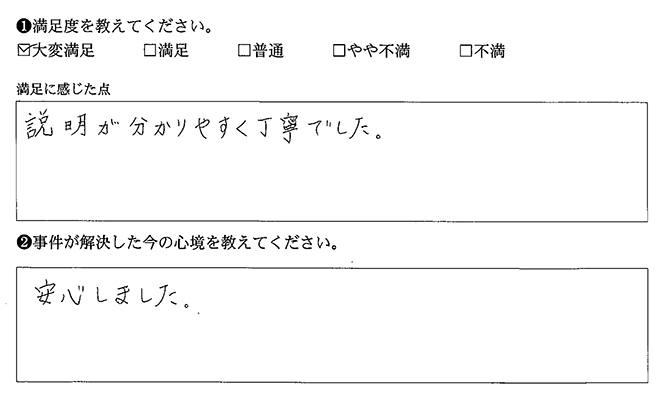 ❶満足度を教えてください。
☑大変満足 □満足 □普通 □やや不満 □不満
満足に感じた点
説明が分かりやすく丁寧でした。
❷事件が解決した今の心境を教えてください。
安心しました。